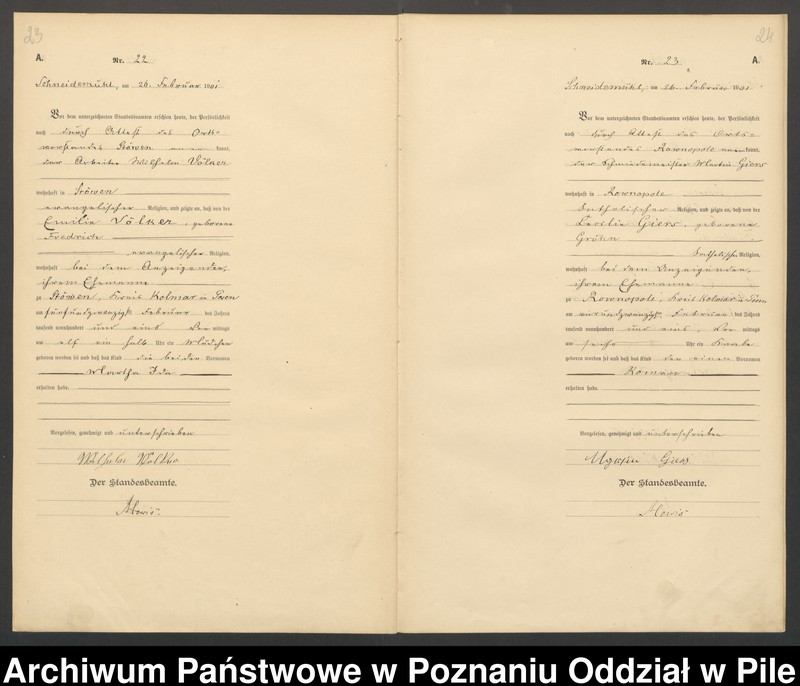 23
A.
Nr. 22
Schneidemühl, am 26. Februar 1901
Vor dem unterzeichneten Standesbeamten erschien heute, der Persönlichkeit
nach durch Attest des Orts-
vorstandes Stöwen kannt,
der Arbeiter Wilhelm Völker
wohnhaft in Stöwen
evangelischer Religion, und zeigte an, daß von der
Emilie Völker, geborene
Friedrich
, evangelischer Religion,
wohnhaft bei dem Anzeigenden,
ihrem Ehemanne
zu Stöwen, Kreis Kolmar in Posen
am fünfundzwanzigsten Februar des Jahres
tausend neunhundert und eins Vor mittags
um elf ein halb Uhr ein Mädchen
geboren worden sei und daß das Kind die beiden Vornamen
Martha Ida
erhalten habe.
Vorgelesen, genehmigt und unterschrieben
Wilhelm Völker
Der Standesbeamte.
24
Nr. 23
A.
Schneidemühl, am 26. Februar 1901
Vor dem unterzeichneten Standesbeamten erschien heute, der Persönlichkeit
nach durch Attest des Orts-
vorstandes Rownopole kannt,
der Schmiedemeister Martin Giers
wohnhaft in Rownopole
katholischer Religion, und zeigte an, daß von der
Cecilie Giers, geborene
Grühn
katholischer Religion,
wohnhaft bei dem Anzeigenden,
ihrem Ehemanne
zu Rownopole, Kreis Kolmar in Posen
am vierundzwanzigsten Februar des Jahres
tausend neunhundert und eins, Vor mittags
um sechs Uhr ein Knabe
geboren worden sei und daß das Kind den einen Vornamen
Roman
erhalten habe.
Vorgelesen, genehmigt und unterschrieben
Giers
Der Standesbeamte.
Archiwum Państwowe w Poznaniu Oddział w Pile